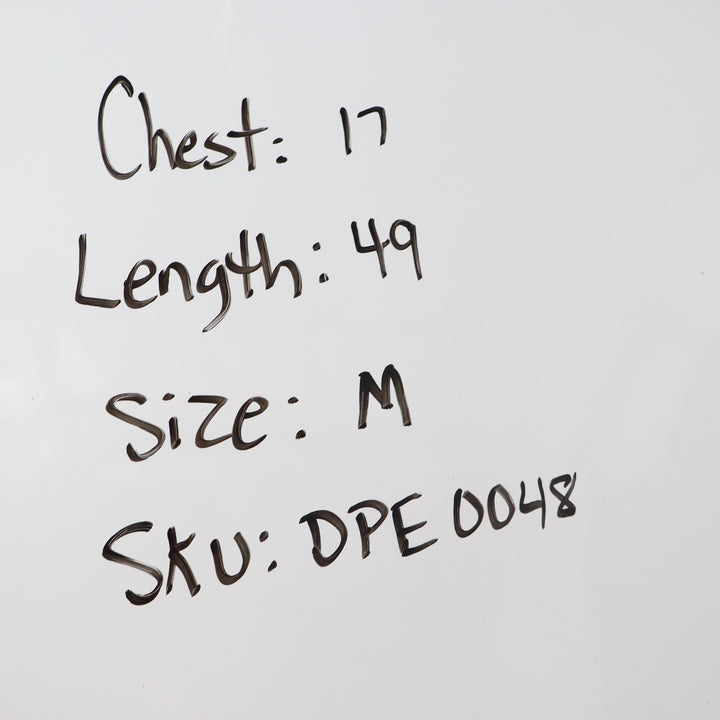 Chest: 17
Length: 49
Size: M
SKU: DPE 0048